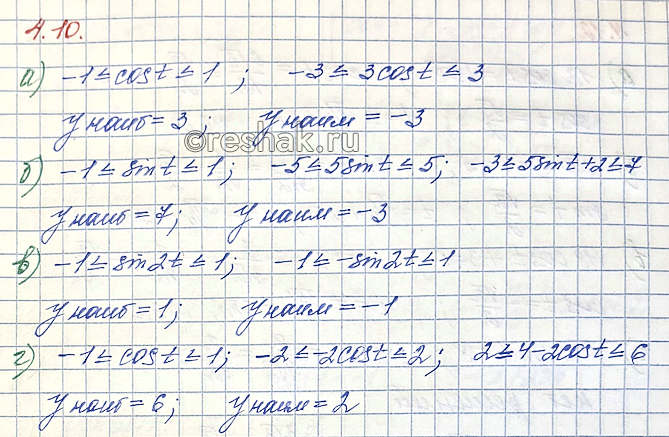 4.10.
а) -1 ≤ cost ≤ 1 ; -3 ≤ 3cost ≤ 3
y наиб = 3 ; y наим = -3
©reshak.ru
б) -1 ≤ sint ≤ 1 ; -5 ≤ 5sint ≤ 5 ; -3 ≤ 5sint+2 ≤ 7
y наиб = 7 ; y наим = -3
в) -1 ≤ sin2t ≤ 1 ; -1 ≤ -sin2t ≤ 1
y наиб = 1 ; y наим = -1
г) -1 ≤ cost ≤ 1 ; -2 ≤ -2cost ≤ 2 ; 2 ≤ 4-2cost ≤ 6
y наиб = 6 ; y наим = 2